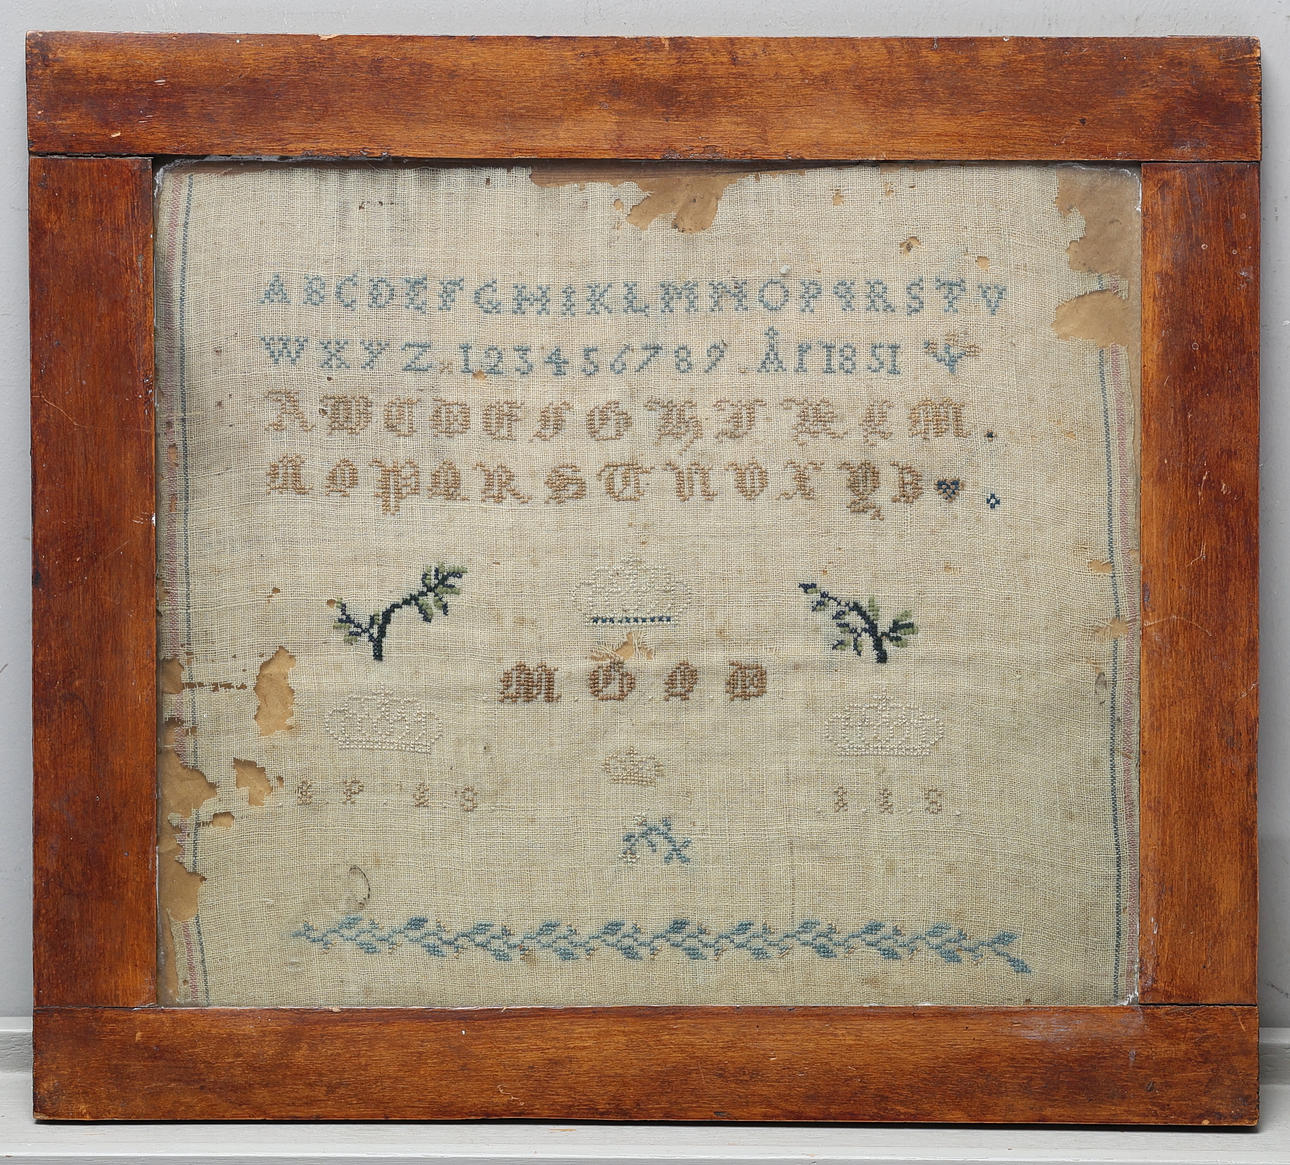 ABCDEFGHIKLMNOPQRSTV
WXYZ.123456789.År1851
ABCDEFGHIKLM.
NOPQRSTUVXYZ
M.G.I.D
I.P.I.S
I.I.S.